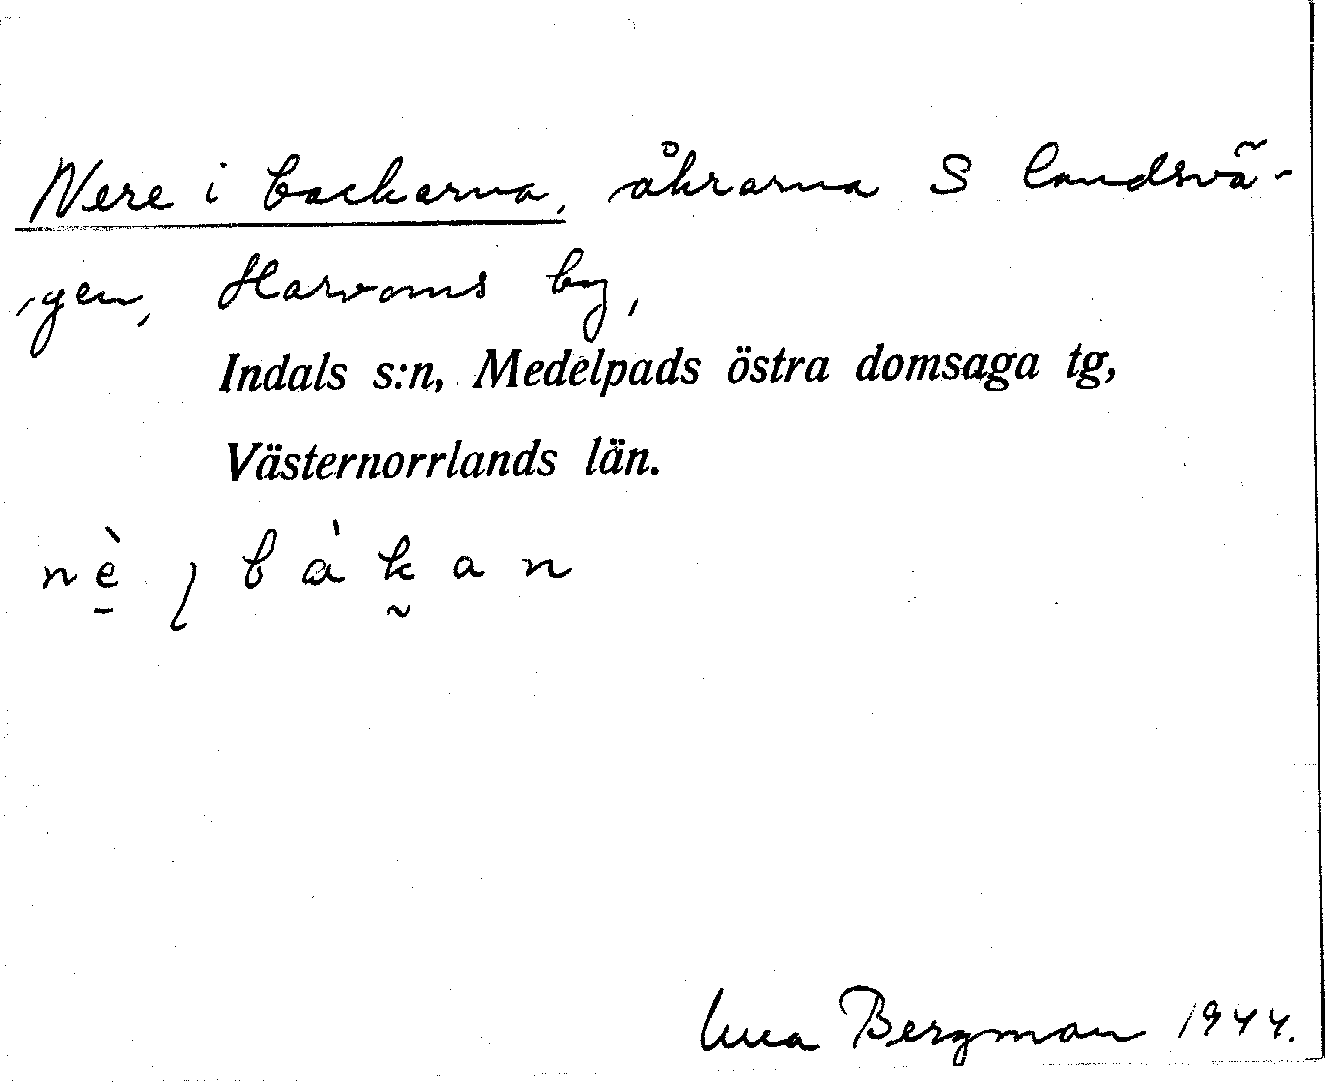 Nere i backarna, åkrarna S landsvä-
gen, Harvoms by,
Indals s:n, Medelpads östra domsaga tg,
Västernorrlands län.
nè̱ ɩ bàk̰an
Bergman 1944.